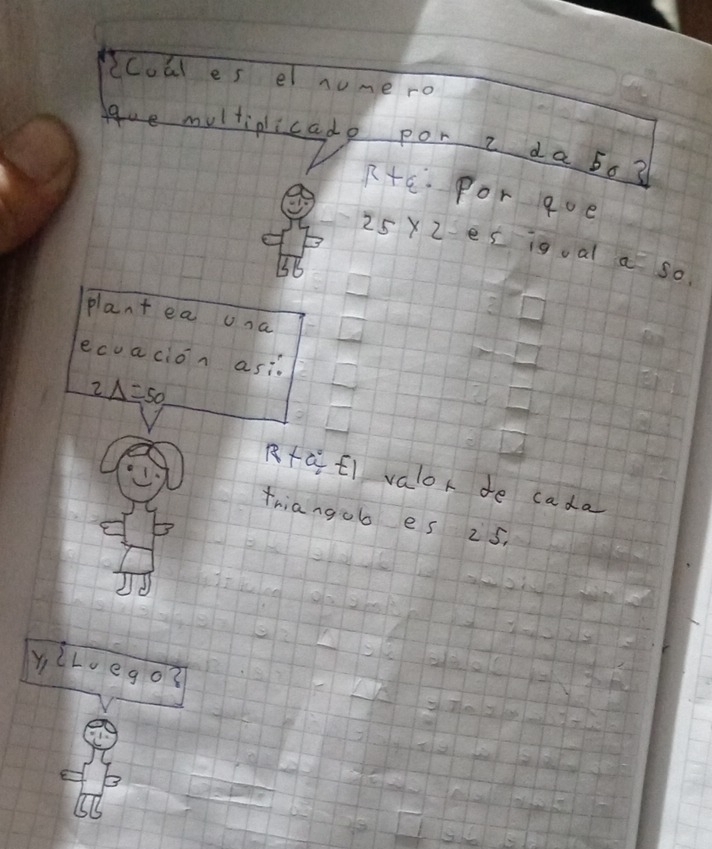 ¿Cuál es el numero
que multiplicado por 2 da 50?
Rta: Por que
25 x 2 es igual a 50.
plantea una
ecuación así:
2Δ=50
Rta: El valor de cada
triangulo es 25.
Y, ¿Luego?